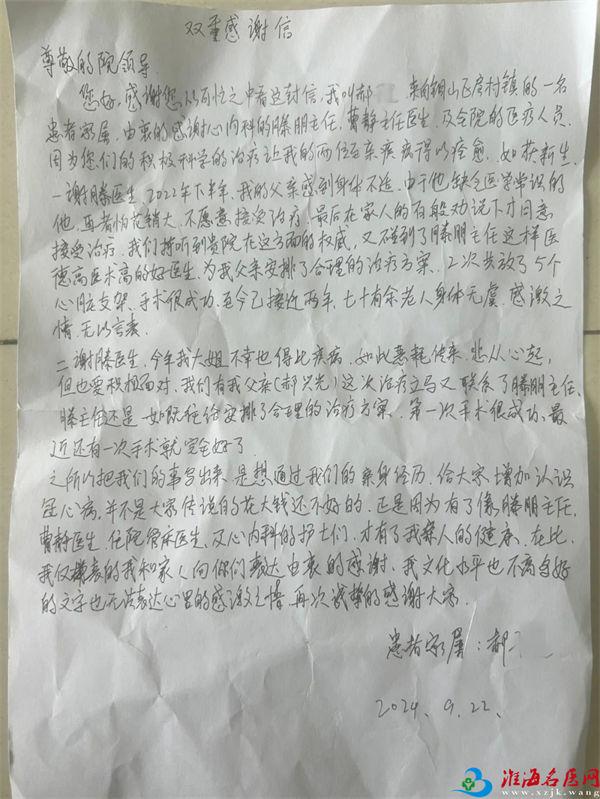 双重感谢信
尊敬的院领导
您好,感谢您从百忙之中看这封信,我叫郝 来自铜山区房村镇的一名
患者家属,由衷的感谢心内科的滕朋主任,曹静主任医生,及全院的医疗人员.
因为您们的积极科学的治疗让我的两位至亲疾病得以痊愈,如获新生.
一谢滕医生,2022年下半年,我的父亲感到身体不适,由于他缺乏医学常识的
他,再者怕花销大,不愿意接受治疗,最后在家人的百般劝说下才同意
接受治疗,我们择听到贵院在这方面的权威,又碰到了滕朋主任这样医
德高医术高的好医生,为我父亲安排了合理的治疗方案,2次共放了5个
心脏支架,手术很成功,至今已接近两年,七十有余老人身体无虞,感激之
情,无以言表.
二谢滕医生,今年我大姐不幸也得此疾病,如此恶耗传来,悲从心起,
但也要积极面对,我们有我父亲(郝兴光)这次治疗立马又联系了滕朋主任,
滕主任还是一如既往给安排了合理的治疗方案,第一次手术很成功,最
近还有一次手术就完全好了
之所以把我们的事写出来,是想通过我们的亲身经历,给大家增加认识
冠心病,并不是大家传说的花大钱还不好的,正是因为有了像滕朋主任,
曹静医生,住院管床医生,及心内科的护士们,才有了我亲人的健康,在此,
我仅代表的我和家人向你们表达由衷的感谢,我文化水平也不高写好
的文字也无法表达心里的感激之情,再次诚挚的感谢大家.
患者家属:郝
2024、9、22、
淮海名医网
www.xzjk.wang